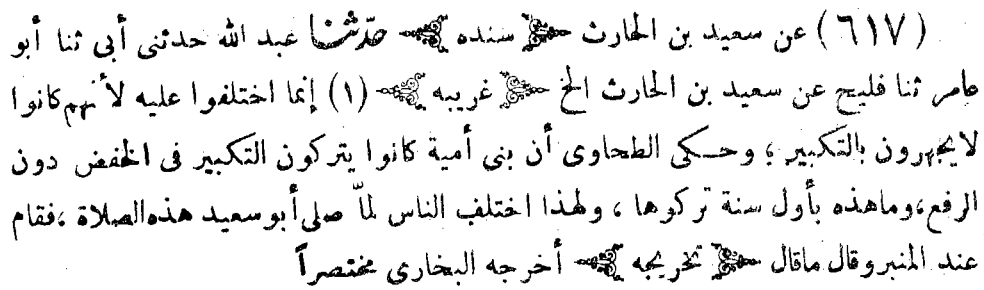 (٦١٧) عن سعيد بن الحارث ﴿ سنده ﴾ حدّثنا عبد الله حدثنى أبى ثنا أبو
عامر ثنا فليح عن سعيد بن الحارث الخ ﴿ غريبه ﴾ (١) إنما اختلفوا عليه لأنهم كانوا
لا يجهرون بالتكبير ؛ وحكى الطحاوى أن بنى أمية كانوا يتركون التكبير فى الخفض دون
الرفع، وما هذه بأول سنة تركوها ، ولهذا اختلف الناس لمّا صلى أبو سعيد هذه الصلاة ،فقام
عند المنبر وقال ما قال ﴿ تخريجه ﴾ أخرجه البخارى مختصراً